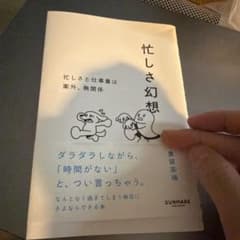 忙しさ幻想
忙しさと仕事量は
案外、無関係
ダラダラしながら、
「時間がない」
と、つい言っちゃう。
なんとなく過ぎてしまう毎日に
さよならできる本
SUNMARK